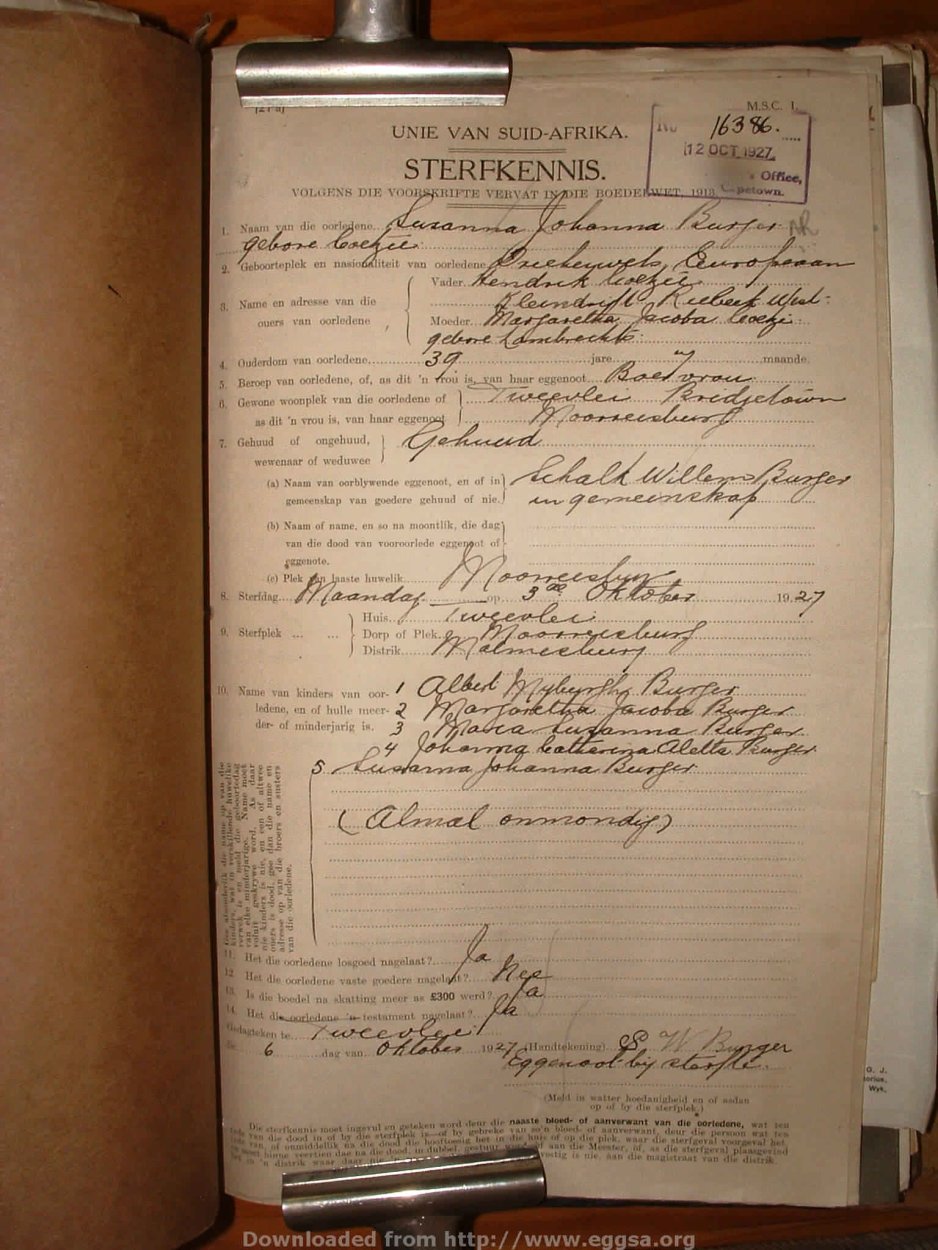 M.S.C. 1.
UNIE VAN SUID-AFRIKA.
No 16386.
12 OCT 1927
Office,
petown.
STERFKENNIS.
VOLGENS DIE VOORSKRIFTE VERVAT IN DIE BOEDELWET, 1913.
1. Naam van die oorledene Susanna Johanna Burger
gebore Coetzee
2. Geboorteplek en nasionaliteit van oorledene Drieheuwels, Europeaan
Vader. Hendrik Coetzee
3. Name en adresse van die ouers van oorledene
Kleindrift Riebeek West
Moeder. Margaretha Jacoba Coetzee
gebore Lambrechts
4. Ouderdom van oorledene 39 jare 7 maande.
5. Beroep van oorledene, of, as dit 'n vrou is, van haar eggenoot Boervrou
6. Gewone woonplek van die oorledene of Tweevlei Bridgetown
as dit 'n vrou is, van haar eggenoot Moorreesburg
7. Gehuud of ongehuud, Gehuud
wewenaar of weduwee
(a) Naam van oorblywende eggenoot, en of in Schalk Willem Burger
gemeenskap van goedere gehuud of nie. in gemeenskap
(b) Naam of name, en so na moontlik, die dag
van die dood van vooroorlede eggenoot of
eggenote.
(c) Plek van laaste huwelik Moorreesburg
8. Sterfdag Maandag op 3de Oktober 1927
Huis Tweevlei
9. Sterfplek ... ... Dorp of Plek Moorreesburg
Distrik Malmesbury
10. Name van kinders van oor- 1 Albert Myburgh Burger
ledene, en of hulle meer- 2 Margaretha Jacoba Burger
der- of minderjarig is. 3 Maria Susanna Burger
4 Johanna Catterina Aletta Burger
5 Susanna Johanna Burger
(Almal onmondig)
11. Het die oorledene losgoed nagelaat? Ja
12. Het die oorledene vaste goedere nagelaat? Nee
13. Is die boedel na skatting meer as £300 werd? Ja
14. Het die oorledene 'n testament nagelaat? Ja
Gedagteken te Tweevlei
die 6 dag van Oktober 1927 (Handtekening) S W Burger
Eggenoot by sterfte.
(Meld in watter hoedanigheid en of asdan
op of by die sterfplek.)
Die sterfkennis moet ingevul en geteken word deur die naaste bloed- of aanverwant van die oorledene, wat ten
tyde van die dood in of by die sterfplek is—of by gebreke van so'n bloed- of aanverwant, deur die persoon wat ten
Downloaded from http://www.eggsa.org